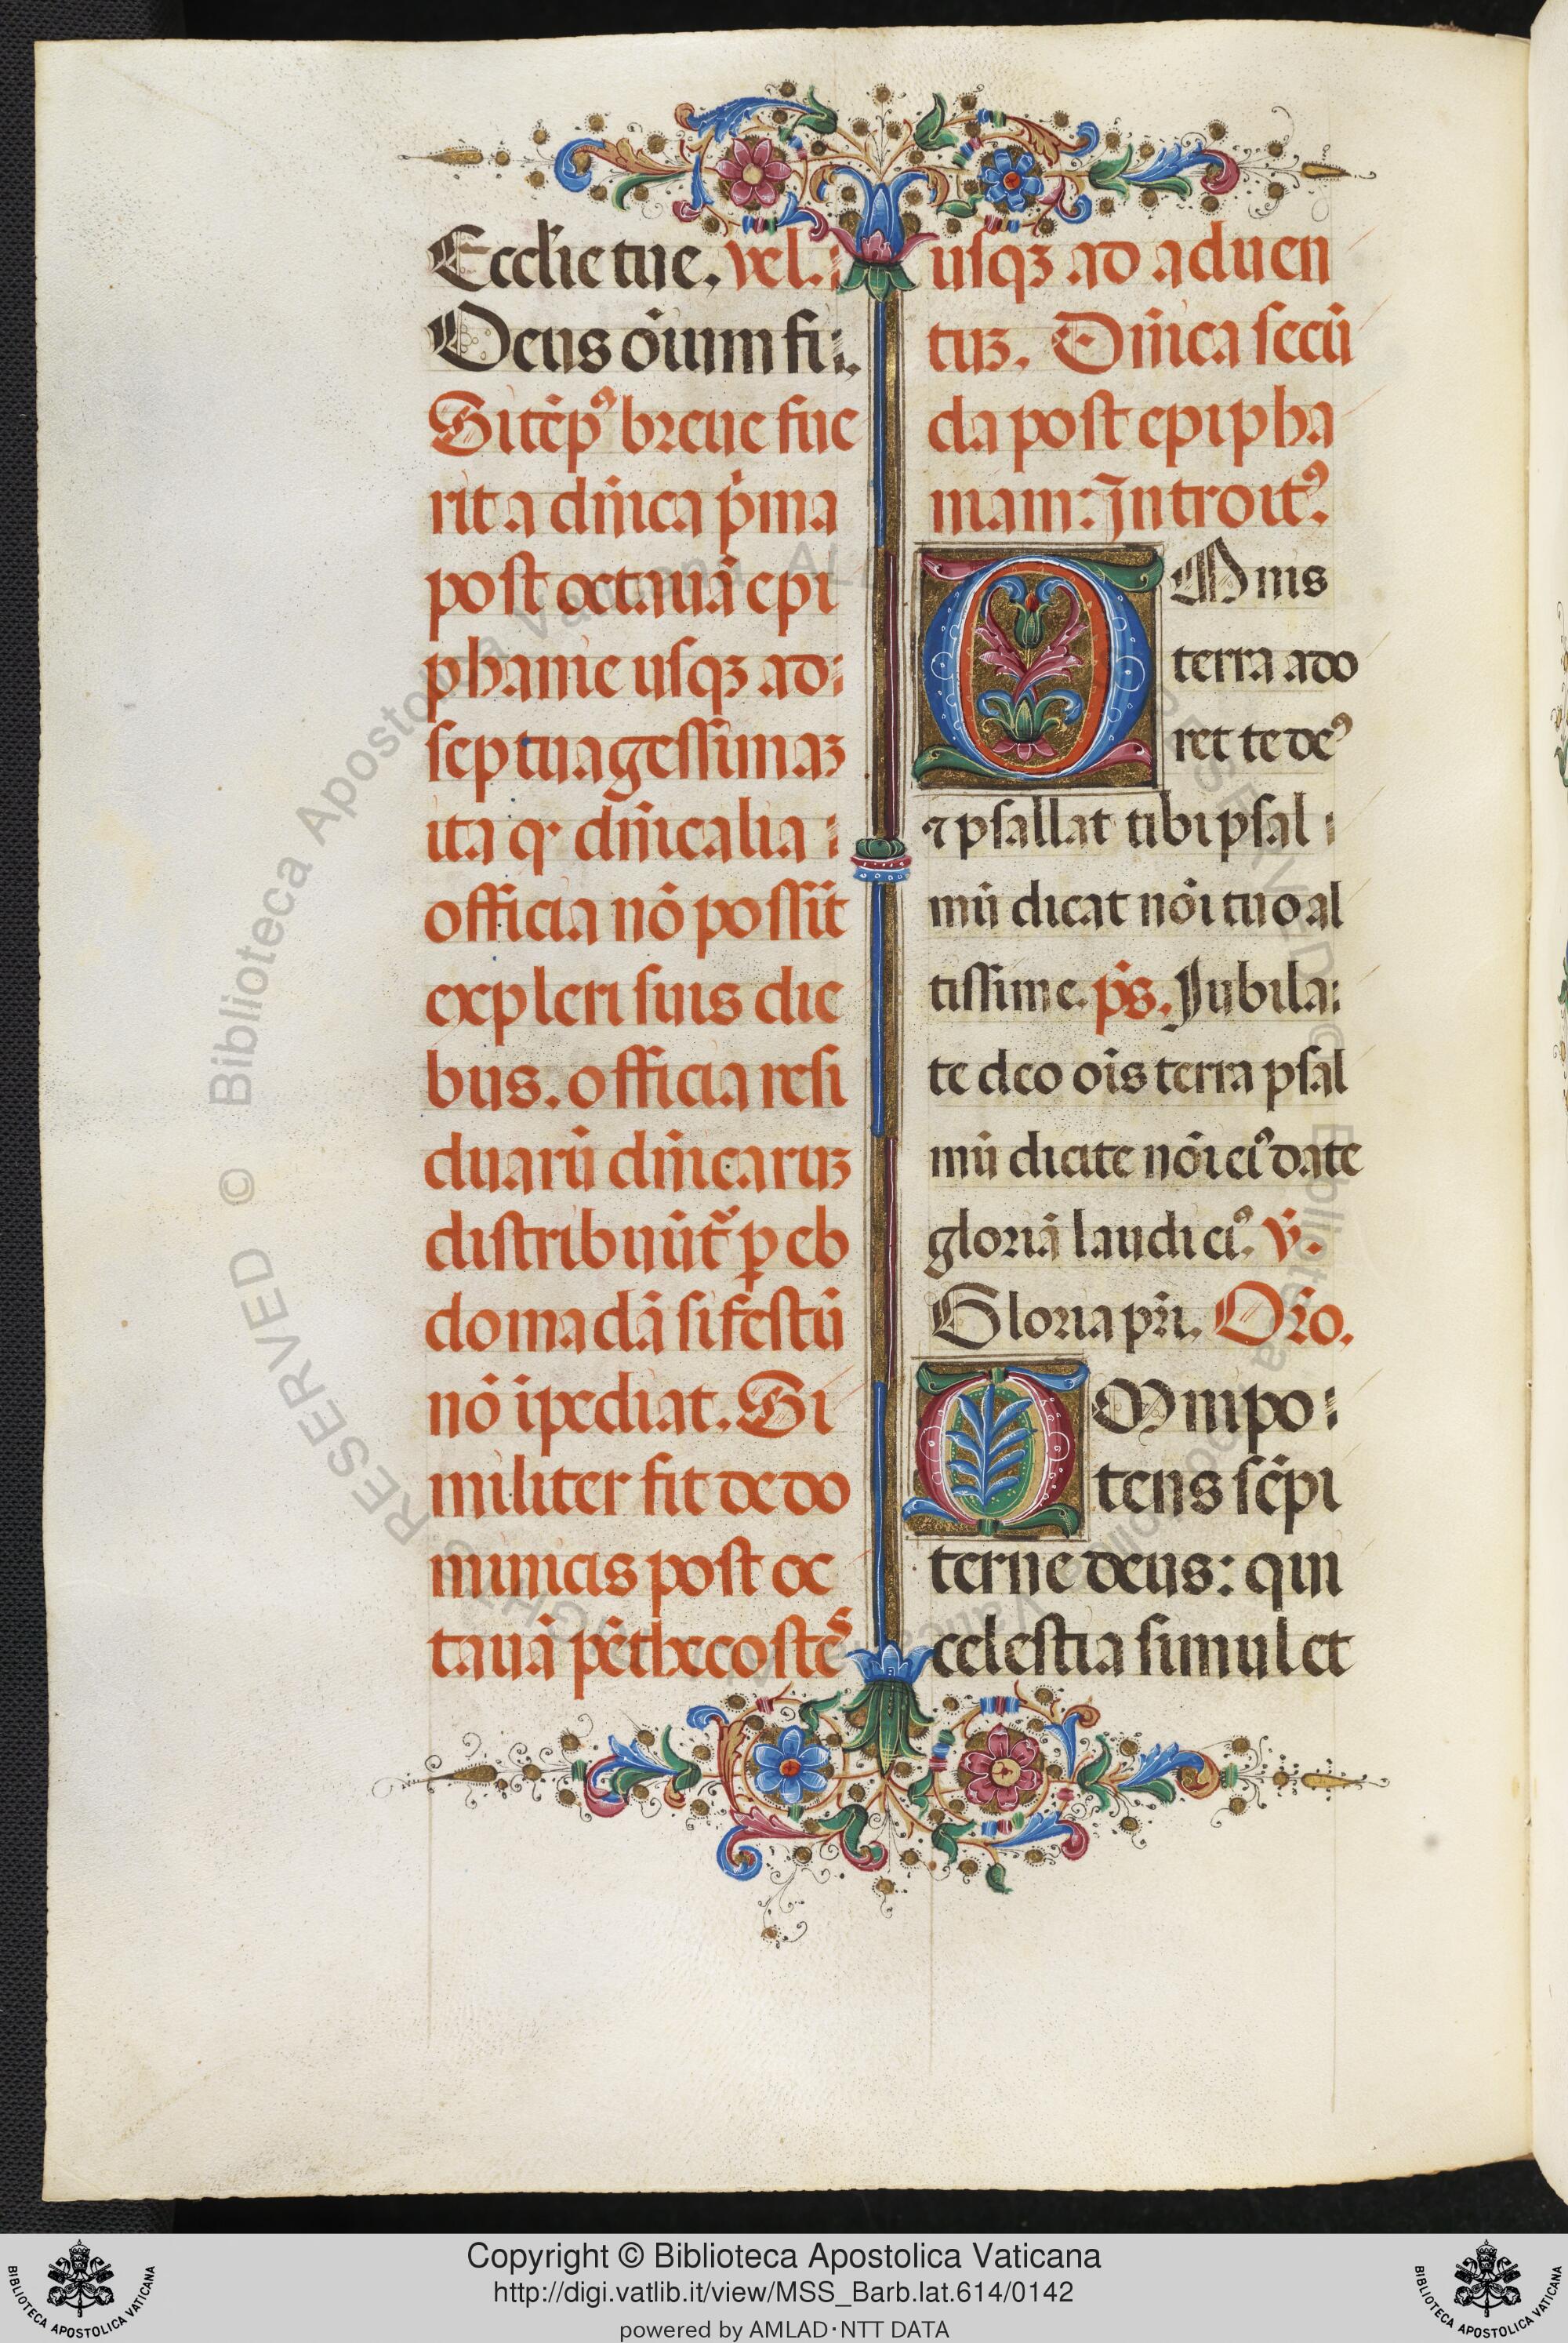 Ecclīe tue. vel.
Deus oīum fi.
Si tēpꝰ breue fue
rit a dn̄ica pͥma
post octauā epi
phanie usqꝫ ad
septuagessimaꝫ
ita qꝫ dn̄icalia
officia nō possīt
expleri suis die
bus. officia resi
duarū dn̄icaruꝫ
distribuūt᷑ ꝑ eb
domadā si festū
nō īpediat. Si
militer fit de do
minicis post oc
tauā pēthecostēˢ
usqꝫ ad aduen
tuꝫ. Dn̄ica secū
da post epipha
niam: Introitꝰ.
OMnis
terra ado
ret te deꝰ
⁊ psallat tibi psal
mū dicat nōi tuo al
tissime. pˢ. Jubila
te deo oīs terra psal
mū dicite nōi eiꝰ date
gloriā laudi eiꝰ. ℣.
Gloria pr̄i. Or̄o.
OMnipo
tens sēpi
terne deus: qui
celestia simul et
© Biblioteca Apostolica Vaticana ALL RIGHTS RESERVED
Copyright © Biblioteca Apostolica Vaticana
http://digi.vatlib.it/view/MSS_Barb.lat.614/0142
powered by AMLAD·NTT DATA
BIBLIOTECA APOSTOLICA VATICANA
BIBLIOTECA APOSTOLICA VATICANA